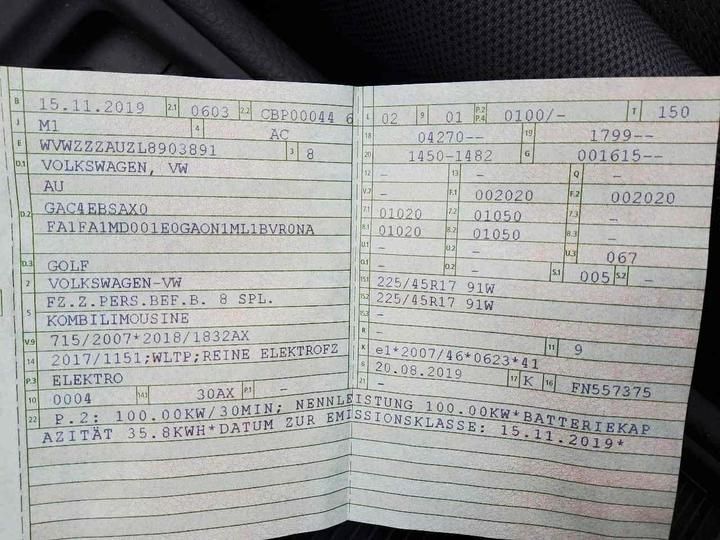 B 15.11.2019 2.1 0603 2.2 CBP00044 6
J M1 4 AC
E WVWZZZAUZL8903891 3 8
D.1 VOLKSWAGEN, VW
AU
D.2 GAC4EBSAX0
FA1FA1MD001E0GAON1ML1BVR0NA
D.3 GOLF
2 VOLKSWAGEN-VW
5 FZ.Z.PERS.BEF.B. 8 SPL.
KOMBILIMOUSINE
V.9 715/2007*2018/1832AX
14 2017/1151;WLTP;REINE ELEKTROFZ
P.3 ELEKTRO
10 0004 14.1 30AX P.1 -
L 02 9 01 P.2 P.4 0100/- T 150
18 04270-- 19 1799--
20 1450-1482 G 001615--
12 - 13 - Q -
V.7 - F.1 002020 F.2 002020
7.1 01020 7.2 01050 7.3 -
8.1 01020 8.2 01050 8.3 -
U.1 - U.2 - U.3 067
O.1 - O.2 - S.1 005 S.2 -
15.1 225/45R17 91W
15.2 225/45R17 91W
15.3 -
R -
K e1*2007/46*0623*41 11 9
6 20.08.2019 17 K 16 FN557375
21 -
22 P.2: 100.00KW/30MIN; NENNLEISTUNG 100.00KW*BATTERIEKAP
AZITÄT 35.8KWH*DATUM ZUR EMISSIONSKLASSE: 15.11.2019*